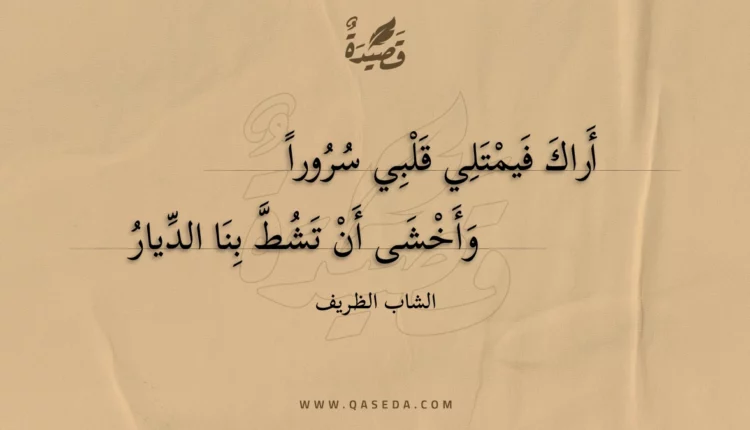 قَصِيْدَةٌ
أَراكَ فَيمْتَلِي قَلْبِي سُرُوراً
وَأَخْشَى أَنْ تَشُطَّ بِنَا الدِّيارُ
الشاب الظريف
WWW.QASEDA.COM